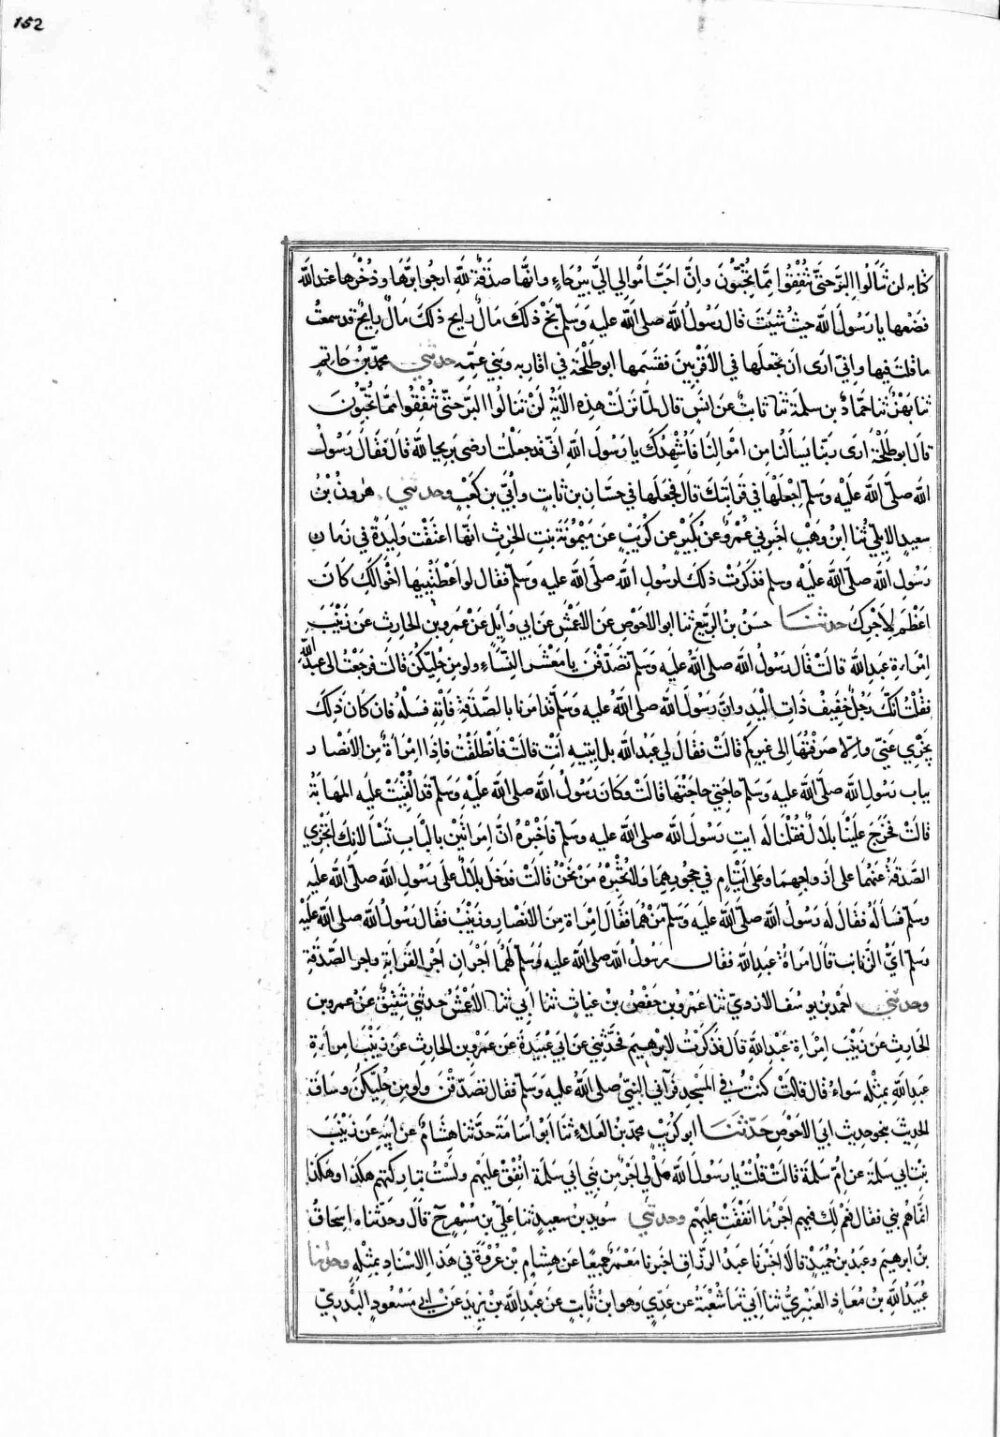 152
كتابه لن تنالوا البر حتى تنفقوا مما تحبون وان احب اموالي الي بيرحاء وانها صدقة لله ارجوا برها وذخرها عند الله
فضعها يا رسول الله حيث شئت قال رسول الله صلى الله عليه وسلم بخ ذلك مال رابح ذلك مال رابح قد سمعت
ما قلت فيها واني ارى ان تجعلها في الاقربين فقسمها ابو طلحة في اقاربه وبني عمه حدثني محمد بن حاتم
ثنا بهز ثنا حماد بن سلمة ثنا ثابت عن انس قال لما نزلت هذه الاية لن تنالوا البر حتى تنفقوا مما تحبون
قال ابو طلحة ارى ربنا يسالنا من اموالنا فاشهدك يا رسول الله اني قد جعلت ارضي بريحا لله قال فقال رسول
الله صلى الله عليه وسلم اجعلها في قرابتك قال فجعلها في حسان بن ثابت وابي بن كعب وحدثني هرون بن
سعيد الايلي ثنا ابن وهب اخبرني عمرو عن بكير عن كريب عن ميمونة بنت الحرث انها اعتقت وليدة في زمان
رسول الله صلى الله عليه وسلم فذكرت ذلك لرسول الله صلى الله عليه وسلم فقال لو اعطيتيها اخوالك كان
اعظم لاجرك حدثنا حسن بن الربيع ثنا ابو الاحوص عن الاعمش عن ابي وايل عن عمرو بن الحارث عن زينب
امراة عبد الله قالت قال رسول الله صلى الله عليه وسلم تصدقن يا معشر النساء ولو من حليكن قالت فرجعت الى عبد الله
فقلت انك رجل خفيف ذات اليد وان رسول الله صلى الله عليه وسلم قد امرنا بالصدقة فاته فسله فان كان ذلك
يجزي عني والا صرفتها الى غيركم قالت فقال لي عبد الله بل ايتيه انت قالت فانطلقت فاذا امراة من الانصار
بباب رسول الله صلى الله عليه وسلم حاجتي حاجتها قالت وكان رسول الله صلى الله عليه وسلم قد القيت عليه المهابة
قالت فخرج علينا بلال فقلنا له ايت رسول الله صلى الله عليه وسلم فاخبره ان امراتين بالباب تسالانك اتجزي
الصدقة عنهما على ازواجهما وعلى ايتام في حجورهما ولا تخبره من نحن قالت فدخل بلال على رسول الله صلى الله عليه
وسلم فساله فقال له رسول الله صلى الله عليه وسلم من هما فقال امراة من الانصار وزينب فقال رسول الله صلى الله عليه
وسلم اي الزيانب قال امراة عبد الله فقال رسول الله صلى الله عليه وسلم لهما اجران اجر القرابة واجر الصدقة
وحدثني احمد بن يوسف الازدي ثنا عمرو بن حفص بن غياث ثنا ابي ثنا الاعمش حدثني شقيق عن عمرو بن
الحارث عن زينب امراة عبد الله قال فذكرت لابرهيم فحدثني عن ابي عبيدة عن عمرو بن الحارث عن زينب امراة
عبد الله بمثله سواء قال قالت كنت في المسجد فرآني النبي صلى الله عليه وسلم فقال تصدقن ولو من حليكن وساق
الحديث بنحو حديث ابي الاحوص حدثنا ابو كريب محمد بن العلاء ثنا ابو اسامة حدثنا هشام عن ابيه عن زينب
بنت ابي سلمة عن ام سلمة قالت قلت يا رسول الله هل لي اجر من بني ابي سلمة انفق عليهم ولست بتاركتهم هكذا وهكذا
انما هم بني فقال نعم لك فيهم اجر ما انفقت عليهم وحدثني سويد بن سعيد ثنا علي بن مسهر ح قال وحدثناه اسحاق
بن ابرهيم وعبد بن حميد قالا اخبرنا عبد الرزاق اخبرنا معمر جميعا عن هشام بن عروة في هذا الاسناد بمثله وحدثنا
عبيد الله بن معاذ العنبري ثنا ابي ثنا شعبة عن عدي وهو ابن ثابت عن عبد الله بن يزيد عن ابي مسعود البدري